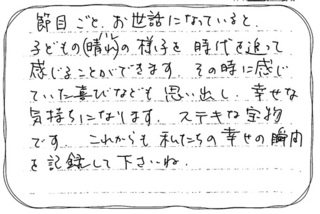 節目ごと、お世話になっていると、
子どもの(晴れの)様子を時代を追って
感じることができます。その時に感じ
ていた喜びなども思い出し、幸せな
気持ちになります。ステキな宝物
です。これからも私たちの幸せの瞬間
を記録して下さいね。